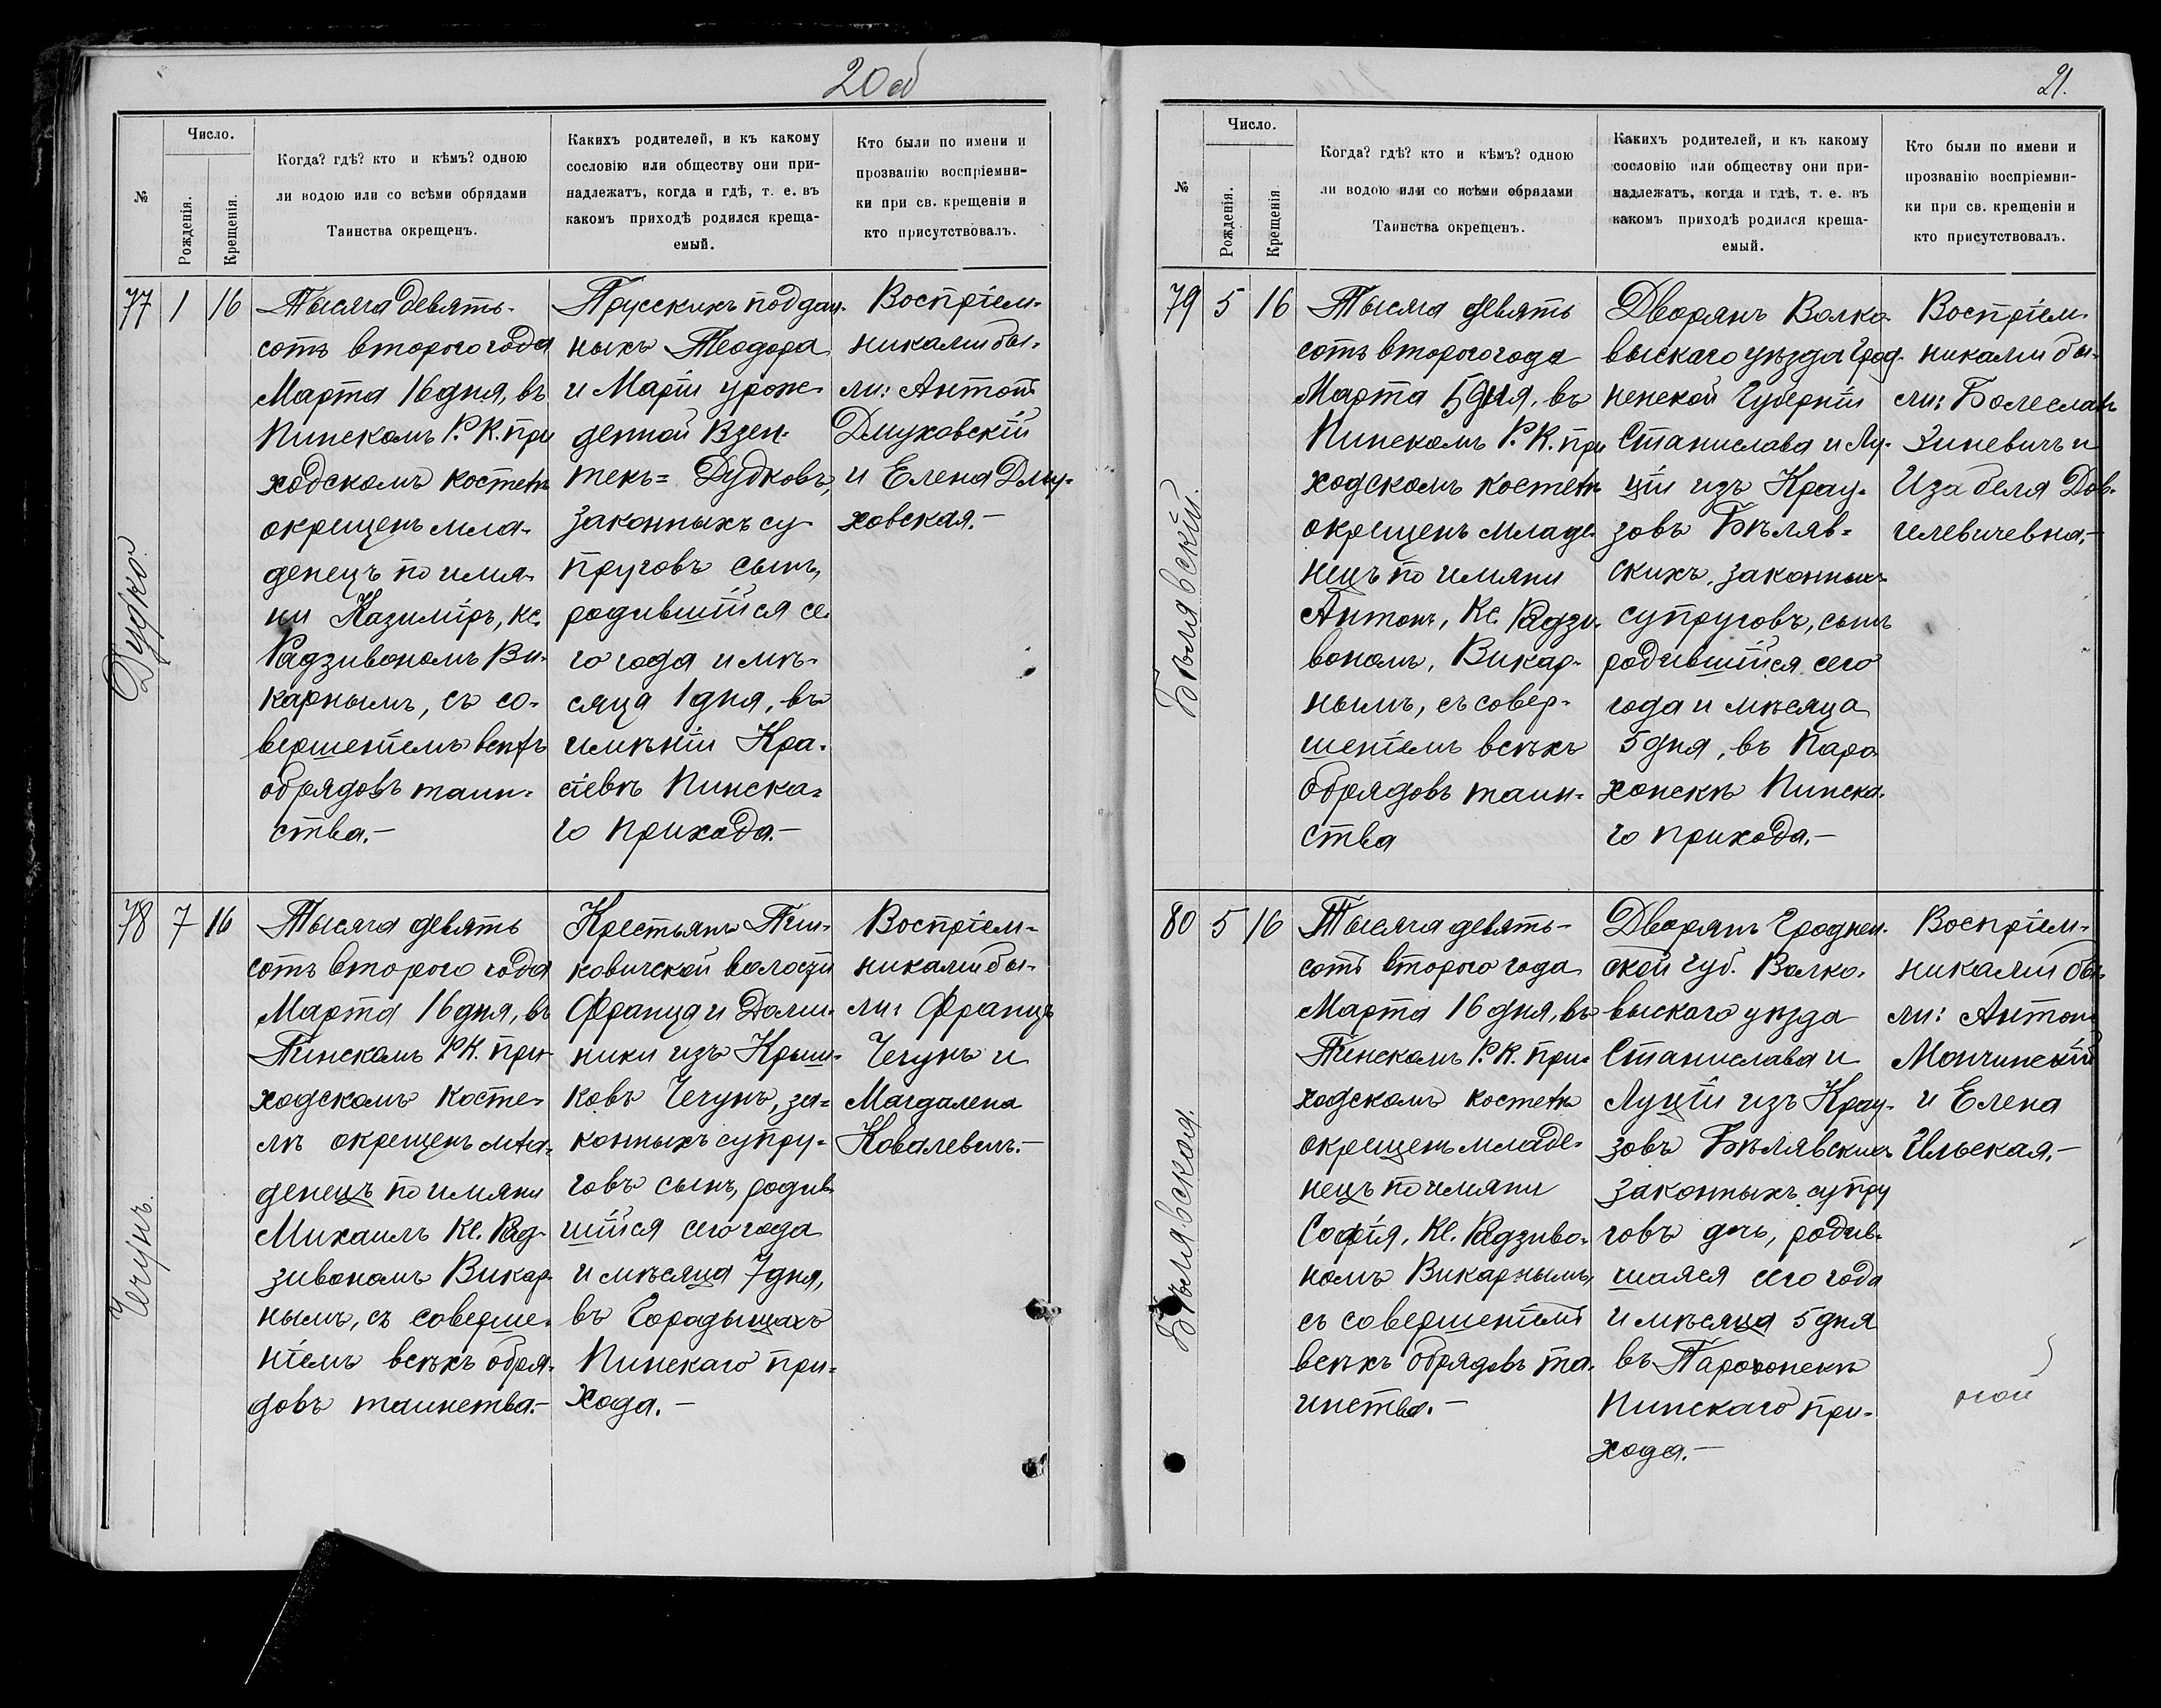 20об
№
Число.
Рожденія.
Крещенія.
Когда? гдѣ? кто и кѣмъ? одною
ли водою или со всѣми обрядами
Таинства окрещенъ.
Какихъ родителей, и къ какому
сословію или обществу они при-
надлежатъ, когда и гдѣ, т. е. въ
какомъ приходѣ родился креща-
емый.
Кто были по имени и
прозванію воспріемни-
ки при св. крещеніи и
кто присутствовалъ.
Дудко.
77
1
16
Тысяча девять-
сотъ второго года
Марта 16 дня, въ
Пинскомъ Р. К. при
ходскомъ костелѣ
окрещенъ мла-
денецъ по имя-
ни Казиміръ, кс.
Радзивономъ Ви-
карнымъ, съ со-
вершеніемъ всѣхъ
обрядовъ таин-
ства.-
Прусскихъ поддан-
ныхъ Теодора
и Маріи урож-
денной Взен-
текъ= Дудковъ,
законныхъ су-
пруговъ сынъ,
родившійся се-
го года и мѣ-
сяца 1 дня, въ
имѣніи Кра-
сіевѣ Пинска-
го прихода.-
Воспріем-
никами бы-
ли: Антонъ
Дмуховскій
и Елена Дму-
ховская.-
Чечунъ.
78
7
16
Тысяча девять
сотъ второго года
Марта 16 дня, въ
Пинскомъ Р. К. при-
ходскомъ косте-
лѣ окрещенъ мла-
денецъ по имяни
Михаилъ Кс. Рад-
зивономъ Викар-
нымъ, съ соверше-
ніемъ всѣхъ обря-
довъ таинства.-
Крестьянъ Пин-
ковичской волости
Франца и Доми-
ники изъ Крыш-
ковъ Чечунъ, за-
конныхъ супру-
говъ сынъ, родив-
шійся сего года
и мѣсяца 7 дня,
въ Городыщахъ
Пинскаго при-
хода.-
Воспріем-
никами бы-
ли: Францъ
Чечунъ и
Магдалена
Ковалевичъ.-
21.
№
Число.
Рожденія.
Крещенія
Когда? гдѣ? кто и кѣмъ? одною
ли водою или со всѣми обрядами
Таинства окрещенъ.
Какихъ родителей, и къ какому
сословію или обществу они при-
надлежатъ, когда и гдѣ, т. е. въ
какомъ приходѣ родился креща-
емый.
Кто были по имени и
прозванію воспріемни-
ки при св. крещеніи и
кто присутствовалъ.
Бѣлявскій.
79
5
16
Тысяча девять
сотъ второго года
Марта 5 дня, въ
Пинскомъ Р. К. при
ходскомъ костелѣ
окрещенъ младе-
нецъ по имяни
Антонъ, Кс. Радзи-
вономъ, Викар-
нымъ, съ совер-
шеніемъ всѣхъ
обрядовъ таин-
ства
Дворянъ Волко-
выскаго уѣзда Грод-
ненской Губерніи
Станислава и Лу-
ціи изъ Крау-
зовъ Бѣляв-
скихъ, законныхъ
супруговъ, сынъ
родившійся сего
года и мѣсяца
5 дня, въ Паро-
хонскѣ Пинска-
го прихода.-
Воспріем-
никами бы-
ли: Болеславъ
Зиневичъ и
Изабеля Дов-
гилевичевна.-
Бѣлявская.
80
5
16
Тысяча девять-
сотъ второго года
Марта 16 дня, въ
Пинскомъ Р. К. при-
ходскомъ костелѣ
окрещенъ младе-
нецъ по имяни
Софія, Кс. Радзиво-
номъ Викарнымъ,
съ совершеніемъ
всѣхъ обрядовъ та-
инства.-
Дворянъ Гроднен-
ской губ. Волко-
выскаго уѣзда
Станислава и
Луціи изъ Крау-
зовъ Бѣлявскихъ
законныхъ супру
говъ дочь, родив-
шаяся сего года
и мѣсяца 5 дня
въ Парохонскѣ
Пинскаго при-
хода.-
Воспріем-
никами бы-
ли: Антонъ
Мончинскій
и Елена
Ильская.-